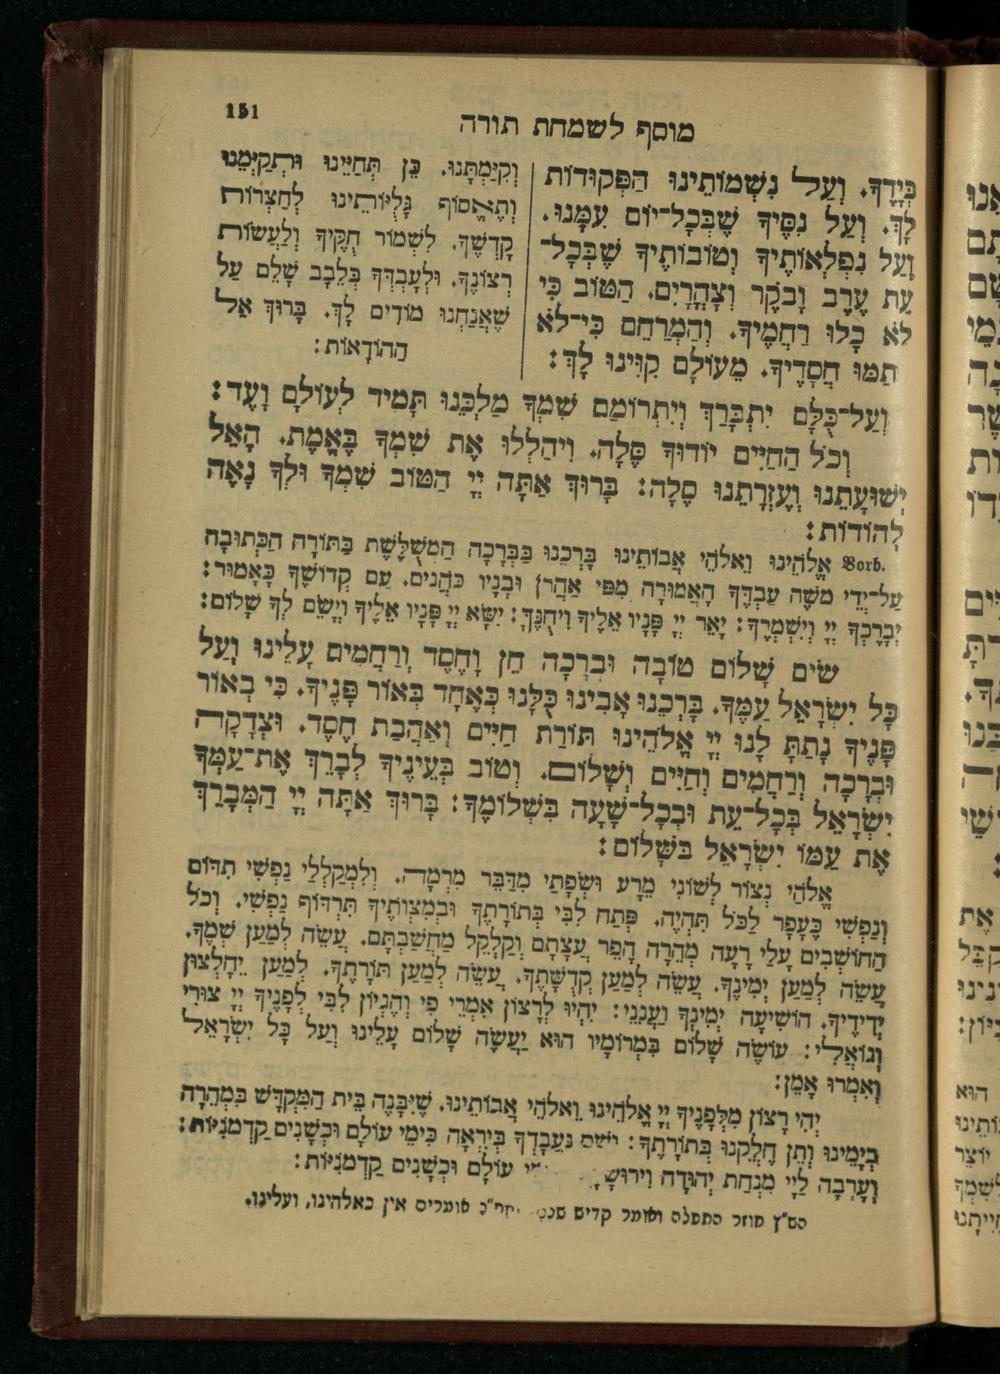 151
מוסף לשמחת תורה
בְּיָדֶךָ. וְעַל נִשְׁמוֹתֵינוּ הַפְּקוּדוֹת
לָךְ. וְעַל נִסֶּיךָ שֶׁבְּכָל־יוֹם עִמָּנוּ.
וְעַל נִפְלְאוֹתֶיךָ וְטוֹבוֹתֶיךָ שֶׁבְּכָל־
עֵת עֶרֶב וָבֹקֶר וְצָהֳרָיִם. הַטּוֹב כִּי
לֹא כָלוּ רַחֲמֶיךָ. וְהַמְרַחֵם כִּי־לֹא
תַמּוּ חֲסָדֶיךָ. מֵעוֹלָם קִוִּינוּ לָךְ:
וְקִיַּמְתָּנוּ. כֵּן תְּחַיֵּינוּ וּתְקַיְּמֵנוּ
וְתֶאֱסוֹף גָּלֻיּוֹתֵינוּ לְחַצְרוֹת
קָדְשֶׁךָ. לִשְׁמוֹר חֻקֶּיךָ וְלַעֲשׂוֹת
רְצוֹנֶךָ. וּלְעָבְדְּךָ בְּלֵבָב שָׁלֵם עַל
שֶׁאֲנַחְנוּ מוֹדִים לָךְ. בָּרוּךְ אֵל
הַהוֹדָאוֹת:
וְעַל־כֻּלָּם יִתְבָּרַךְ וְיִתְרוֹמַם שִׁמְךָ מַלְכֵּנוּ תָּמִיד לְעוֹלָם וָעֶד:
וְכֹל הַחַיִּים יוֹדוּךָ סֶּלָה. וִיהַלְלוּ אֶת שִׁמְךָ בֶּאֱמֶת. הָאֵל
יְשׁוּעָתֵנוּ וְעֶזְרָתֵנוּ סֶלָה: בָּרוּךְ אַתָּה יְיָ הַטּוֹב שִׁמְךָ וּלְךָ נָאֶה
לְהוֹדוֹת:
Vorb. אֱלֹהֵינוּ וֵאלֹהֵי אֲבוֹתֵינוּ בָּרְכֵנוּ בַבְּרָכָה הַמְשֻׁלֶּשֶׁת בַּתּוֹרָה הַכְּתוּבָה
עַל־יְדֵי מֹשֶׁה עַבְדֶּךָ הָאֲמוּרָה מִפִּי אַהֲרֹן וּבָנָיו כֹּהֲנִים. עַם קְדוֹשֶׁךָ כָּאָמוּר:
יְבָרֶכְךָ יְיָ וְיִשְׁמְרֶךָ: יָאֵר יְיָ פָּנָיו אֵלֶיךָ וִיחֻנֶּךָּ: יִשָּׂא יְיָ פָּנָיו אֵלֶיךָ וְיָשֵׂם לְךָ שָׁלוֹם:
שִׂים שָׁלוֹם טוֹבָה וּבְרָכָה חֵן וָחֶסֶד וְרַחֲמִים עָלֵינוּ וְעַל
כָּל יִשְׂרָאֵל עַמֶּךָ. בָּרְכֵנוּ אָבִינוּ כֻּלָּנוּ כְּאֶחָד בְּאוֹר פָּנֶיךָ. כִּי בְאוֹר
פָּנֶיךָ נָתַתָּ לָּנוּ יְיָ אֱלֹהֵינוּ תּוֹרַת חַיִּים וְאַהֲבַת חֶסֶד. וּצְדָקָה
וּבְרָכָה וְרַחֲמִים וְחַיִּים וְשָׁלוֹם. וְטוֹב בְּעֵינֶיךָ לְבָרֵךְ אֶת־עַמְּךָ
יִשְׂרָאֵל בְּכָל־עֵת וּבְכָל־שָׁעָה בִּשְׁלוֹמֶךָ: בָּרוּךְ אַתָּה יְיָ הַמְבָרֵךְ
אֶת עַמּוֹ יִשְׂרָאֵל בַּשָּׁלוֹם:
אֱלֹהַי נְצוֹר לְשׁוֹנִי מֵרָע וּשְׂפָתַי מִדַּבֵּר מִרְמָה. וְלִמְקַלְלַי נַפְשִׁי תִדּוֹם
וְנַפְשִׁי כֶּעָפָר לַכֹּל תִּהְיֶה. פְּתַח לִבִּי בְּתוֹרָתֶךָ וּבְמִצְוֹתֶיךָ תִּרְדּוֹף נַפְשִׁי. וְכֹל
הַחוֹשְׁבִים עָלַי רָעָה מְהֵרָה הָפֵר עֲצָתָם וְקַלְקֵל מַחֲשַׁבְתָּם. עֲשֵׂה לְמַעַן שְׁמֶךָ.
עֲשֵׂה לְמַעַן יְמִינֶךָ. עֲשֵׂה לְמַעַן קְדֻשָּׁתֶךָ. עֲשֵׂה לְמַעַן תּוֹרָתֶךָ. לְמַעַן יֵחָלְצוּן
יְדִידֶיךָ. הוֹשִׁיעָה יְמִינְךָ וַעֲנֵנִי: יִהְיוּ לְרָצוֹן אִמְרֵי פִי וְהֶגְיוֹן לִבִּי לְפָנֶיךָ יְיָ צוּרִי
וְגוֹאֲלִי: עוֹשֶׂה שָׁלוֹם בִּמְרוֹמָיו הוּא יַעֲשֶׂה שָׁלוֹם עָלֵינוּ וְעַל כָּל יִשְׂרָאֵל
וְאִמְרוּ אָמֵן:
יְהִי רָצוֹן מִלְּפָנֶיךָ יְיָ אֱלֹהֵינוּ וֵאלֹהֵי אֲבוֹתֵינוּ. שֶׁיִּבָּנֶה בֵּית הַמִּקְדָּשׁ בִּמְהֵרָה
בְיָמֵינוּ וְתֵן חֶלְקֵנוּ בְּתוֹרָתֶךָ: וְשָׁם נַעֲבָדְךָ בְּיִרְאָה כִּימֵי עוֹלָם וּכְשָׁנִים קַדְמֹנִיּוֹת:
וְעָרְבָה לַיְיָ מִנְחַת יְהוּדָה וִירוּשָׁ עוֹלָם וּכְשָׁנִים קַדְמֹנִיּוֹת:
הש"ץ חוזר התפלה ואומר קדיש אומרים אין כאלהינו, ועלינו.